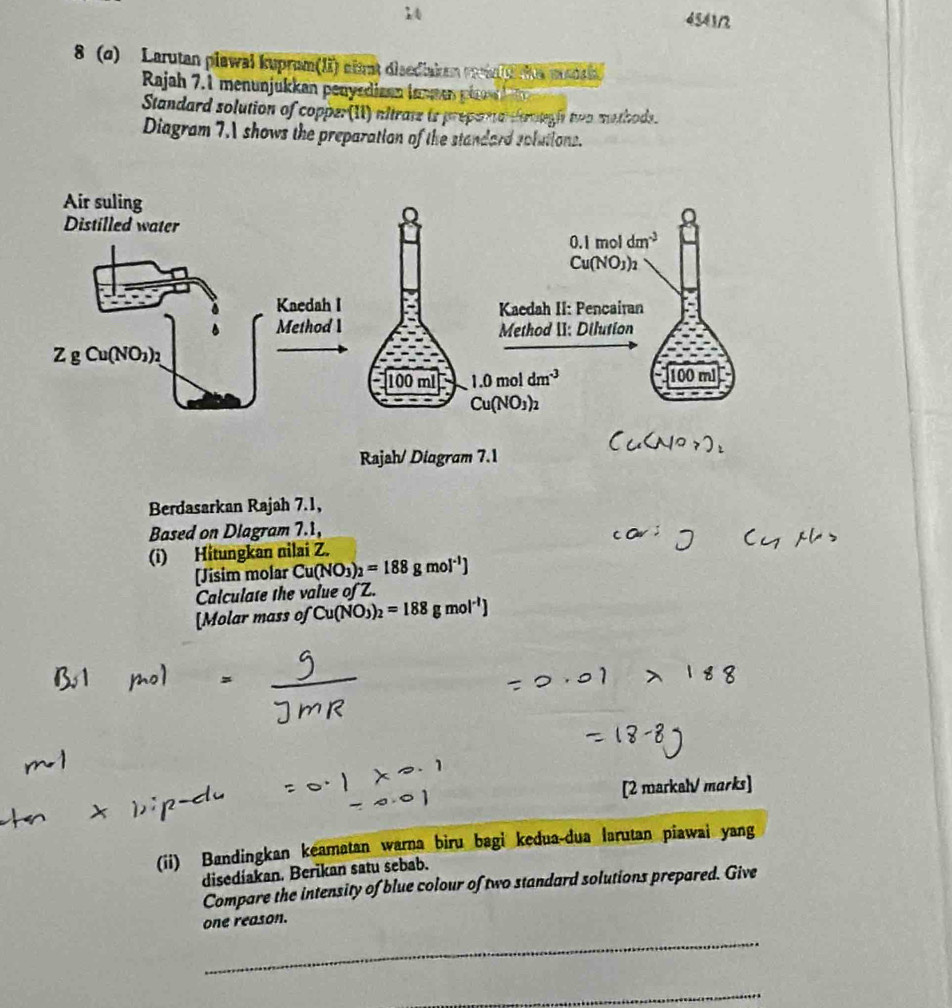 4541/2
8 (a) Larutan piawai kuprum(II)
Rajah 7.1 menunjukkan penyediaan
Standard solution of copper(II) nitrate is prepared through two methods.
Diagram 7.1 shows the preparation of the standard solutions.
Air suling
Distilled water
0.1 mol dm⁻³
Cu(NO₃)₂
Kaedah I
Method I
Kaedah II: Pencairan
Method II: Dilution
Z g Cu(NO₃)₂
100 ml
1.0 mol dm⁻³
Cu(NO₃)₂
100 ml
Cu(NO₃)₂
Rajah/ Diagram 7.1
Berdasarkan Rajah 7.1,
Based on Diagram 7.1,
(i) Hitungkan nilai Z.
[Jisim molar Cu(NO₃)₂ = 188 g mol⁻¹]
Calculate the value of Z.
[Molar mass of Cu(NO₃)₂ = 188 g mol⁻¹]
cari g
Bil mol = g / JMR
= 0.01 × 188
= 18.8g
mol
× isipadu = 0.1 × 0.1
= 0.01
[2 markah/ marks]
(ii) Bandingkan keamatan warna biru bagi kedua-dua larutan piawai yang
disediakan. Berikan satu sebab.
Compare the intensity of blue colour of two standard solutions prepared. Give
one reason.